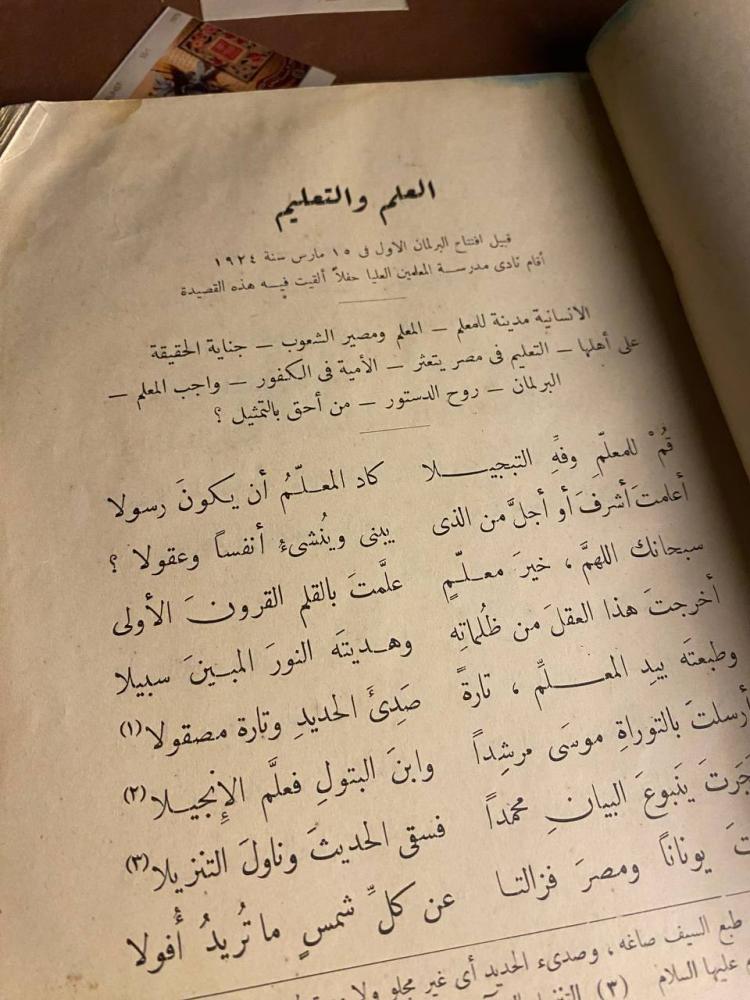 العلم والتعليم
قبيل افتتاح البرلمان الاول فى ١٥ مارس سنة ١٩٢٤
أقام نادى مدرسة المعلمين العليا حفلاً ألقيت فيه هذه القصيدة
الانسانية مدينة للمعلم — المعلم ومصير الشعوب — جناية الحقيقة
على أهلها — التعليم فى مصر يتعثر — الأمية فى الكفور — واجب المعلم —
البرلمان — روح الدستور — من أحق بالتمثيل ؟
قُمْ للمعلّمِ وفِّهِ التبجيـــلا كاد المعـلّـمُ أن يـكونَ رسولا
أعلمتَ أشرفَ أو أجلَّ من الذى يبنى ويُنْشىءُ أنفساً وعقولا ؟
سبحانك اللهمَّ ، خيرَ معـلّـمٍ علَّمتَ بالقلم القرونَ الأولى
أخرجتَ هذا العقلَ من ظلُماتِه وهـديتَه النورَ المبـينَ سبيلا
وطبعتَه بيدِ المعــلِّم ، تارةً صَدِئَ الحديدِ وتارة مصقولا (١)
أرسلتَ بالتوراةِ موسَى مرشداً وابنَ البتولِ فعلَّم الإنجيـلا (٢)
جَرتَ يَنبوعَ البيانِ محمداً فسقى الحديثَ وناولَ التنزيلا (٣)
يوناناً ومصرَ فزالتـا عن كلِّ شمسٍ ما تُريدُ أُفولا
طبع السيف صاغه ، وصدىء الحديد أى غير مجلو
عليها السلام (٣)